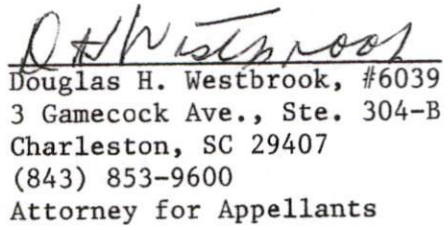 D H Westbrook
Douglas H. Westbrook, #6039
3 Gamecock Ave., Ste. 304-B
Charleston, SC 29407
(843) 853-9600
Attorney for Appellants